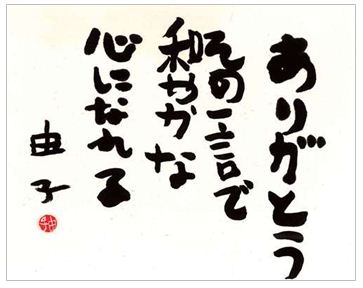 ありがとう
その一言で
和やかな
心になれる
由子